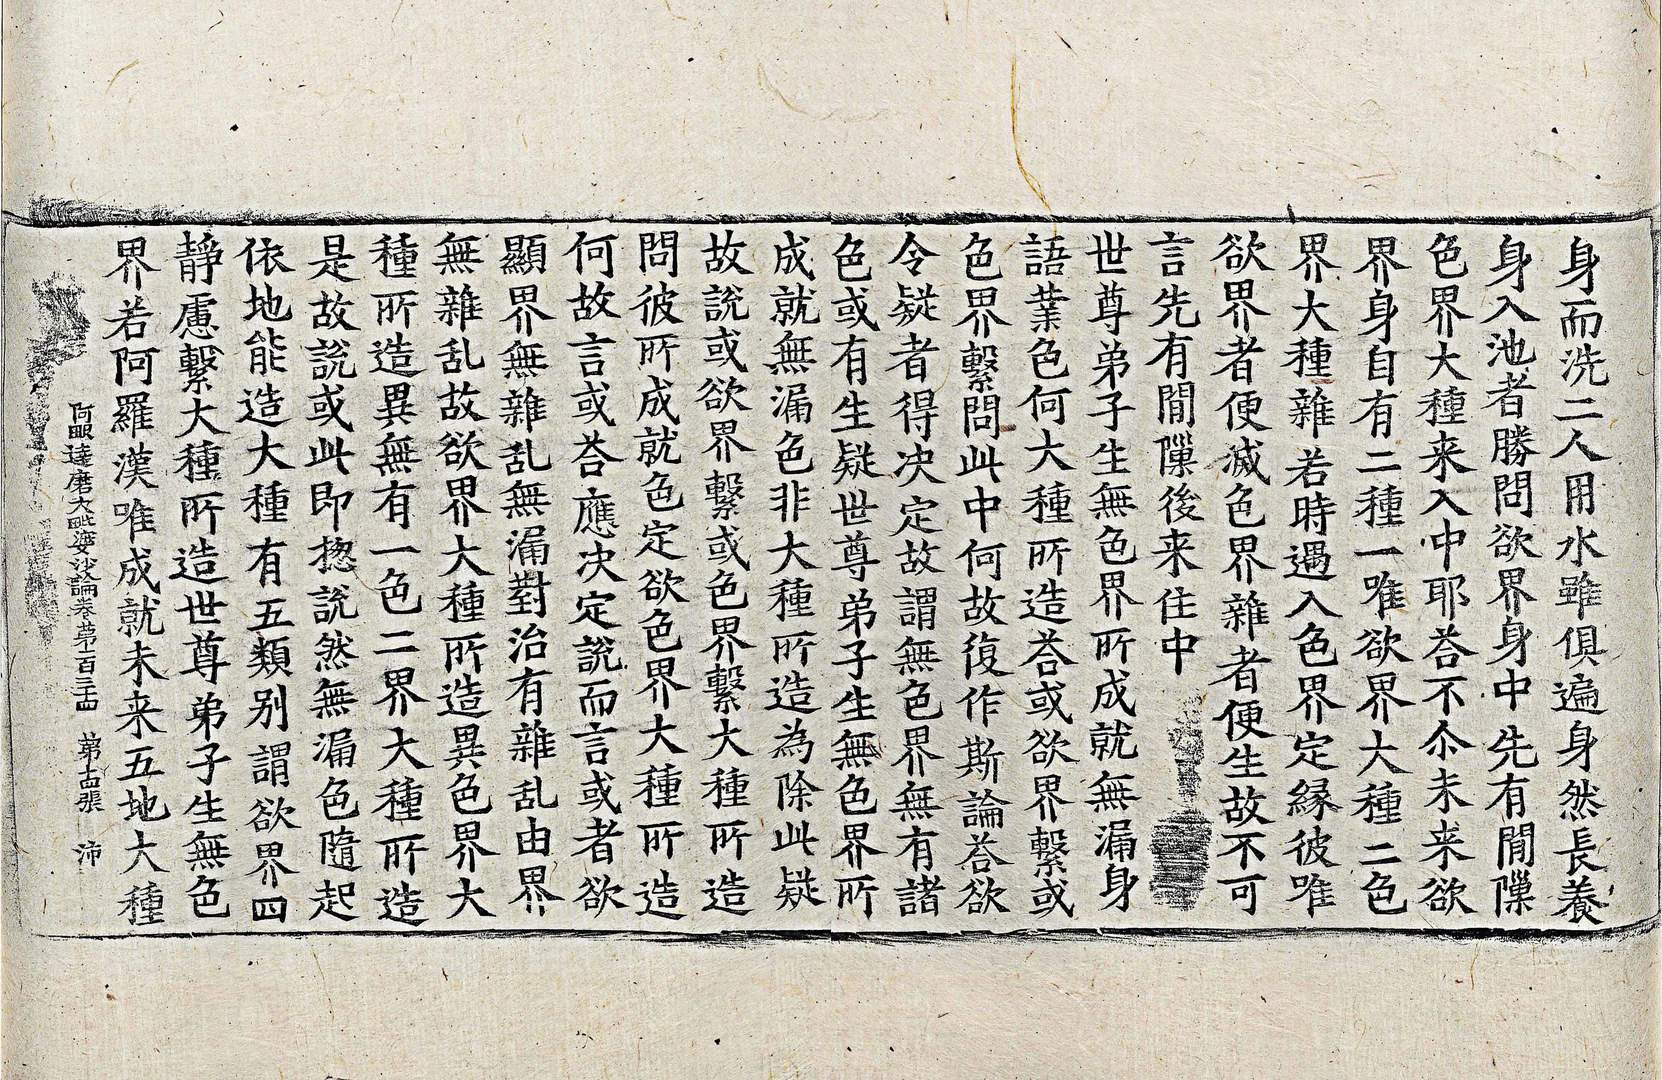 身而洗二人用水雖俱遍身然長養
身入池者勝問欲界身中先有間隟
色界大種来入中耶荅不尒未来欲
界身自有二種一唯欲界大種二色
界大種雜若時遇入色界定縁彼唯
欲界者便滅色界雜者便生故不可
言先有間隟後来住中
世尊弟子生無色界所成就無漏身
語業色何大種所造荅或欲界繫或
色界繫問此中何故復作斯論荅欲
令疑者得决定故謂無色界無有諸
色或有生疑世尊弟子生無色界所
成就無漏色非大種所造為除此疑
故說或欲界繫或色界繫大種所造
問彼所成就色定欲色界大種所造
何故言或荅應决定說而言或者欲
顯界無雜乱無漏對治有雜乱由界
無雜乱故欲界大種所造異色界大
種所造異無有一色二界大種所造
是故說或此即揔說然無漏色隨起
依地能造大種有五類别謂欲界四
靜慮繫大種所造世尊弟子生無色
界若阿羅漢唯成就未来五地大種
阿毗達磨大毗婆沙論卷第一百三十四 第十四張 沛